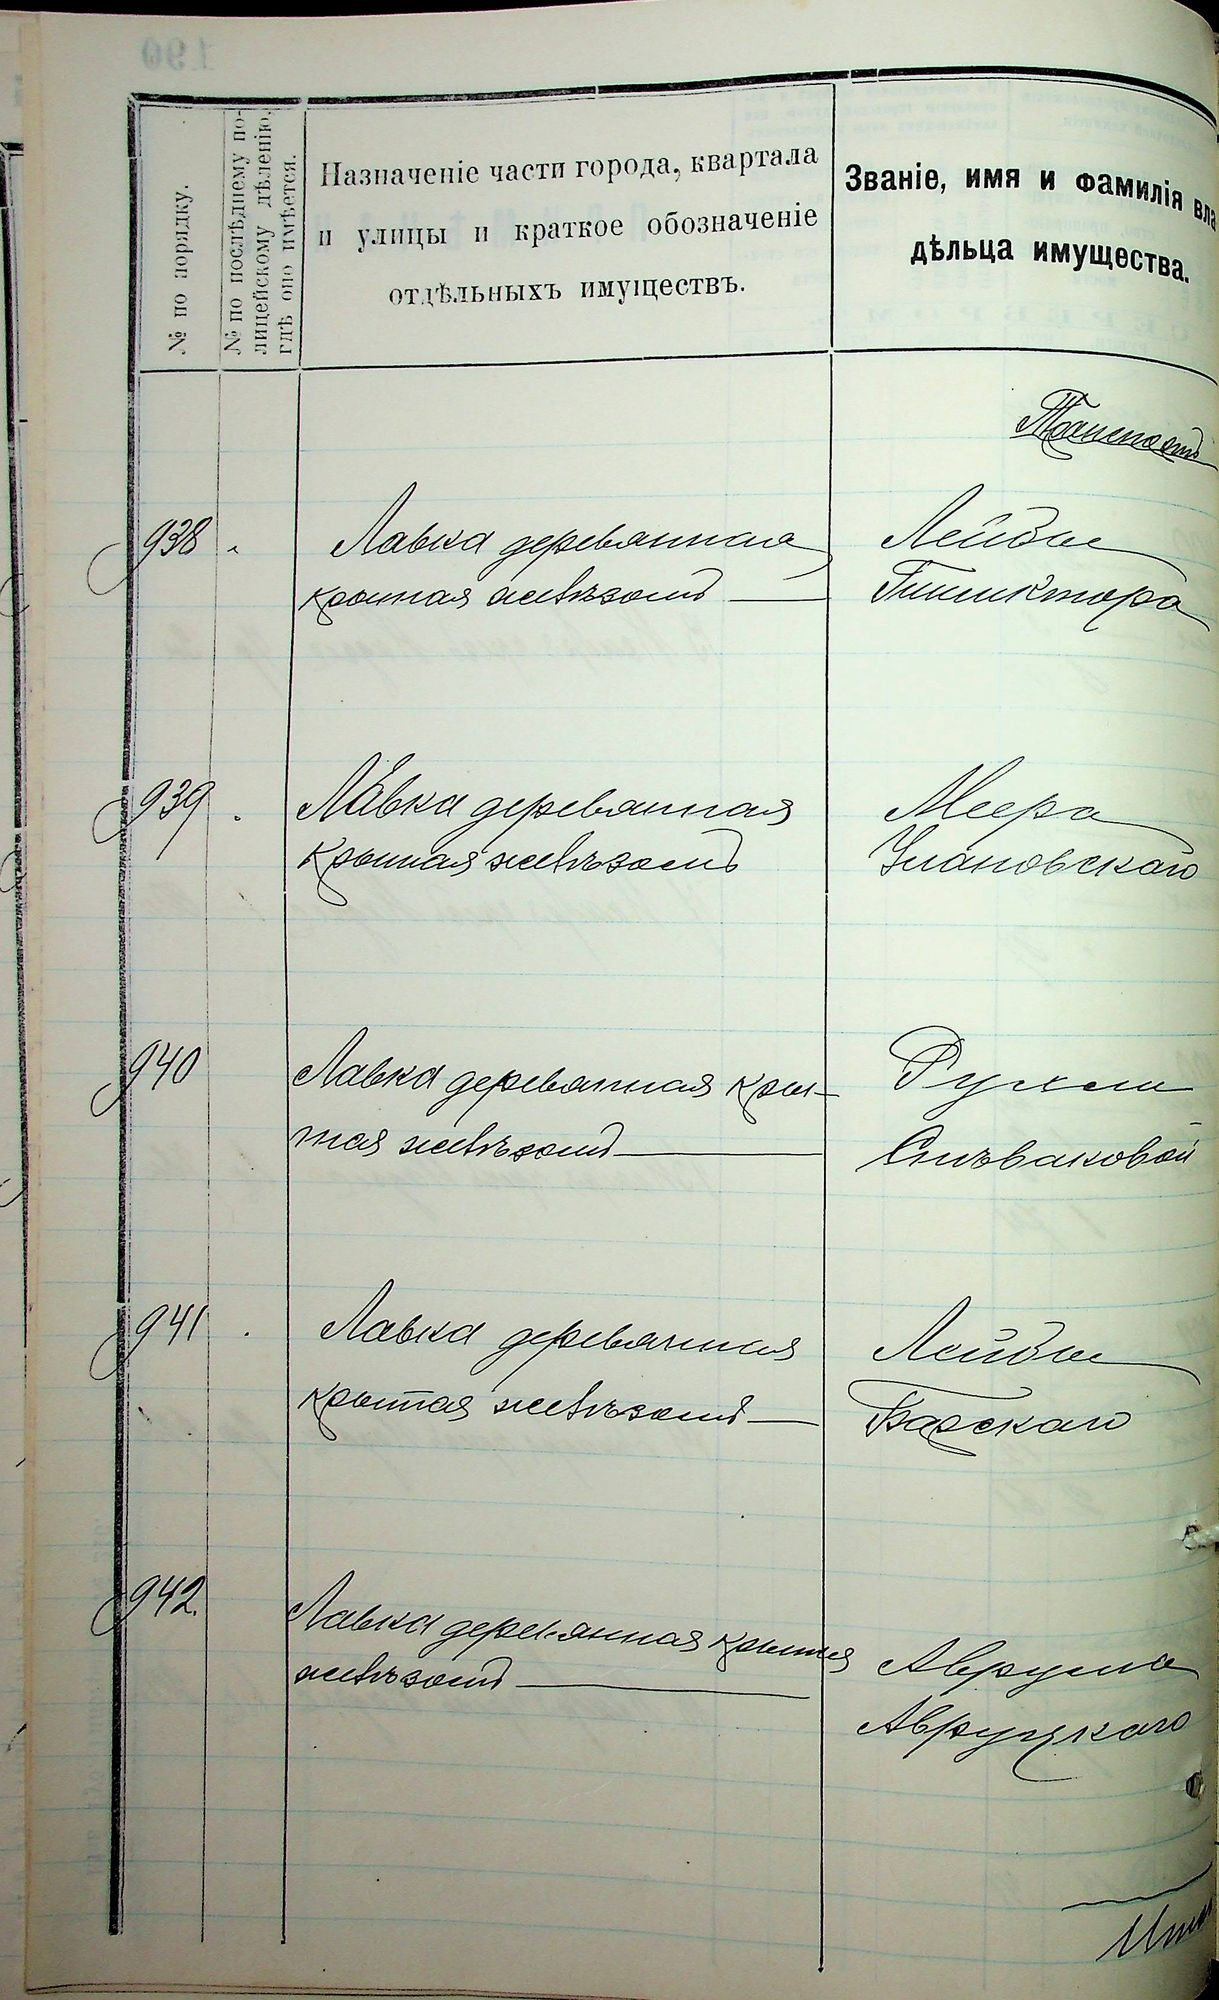 № по порядку.
№ по послѣднему по-
лицейскому дѣленію,
гдѣ оно имѣется.
Назначеніе части города, квартала
и улицы и краткое обозначеніе
отдѣльныхъ имуществъ.
Званіе, имя и фамилія вла
дѣльца имущества.
938
Лавка деревянная
крытая желѣзомъ
Лейбы
939
Лавка деревянная
крытая желѣзомъ
Меера
Улановскаго
940
Лавка деревянная кры-
тая желѣзомъ
Рухли
Спѣваковой
941
Лавка деревянная
крытая желѣзомъ
Лейбы
Барскаго
942.
Лавка деревянная крытая
желѣзомъ
Аврума
Авруцкаго